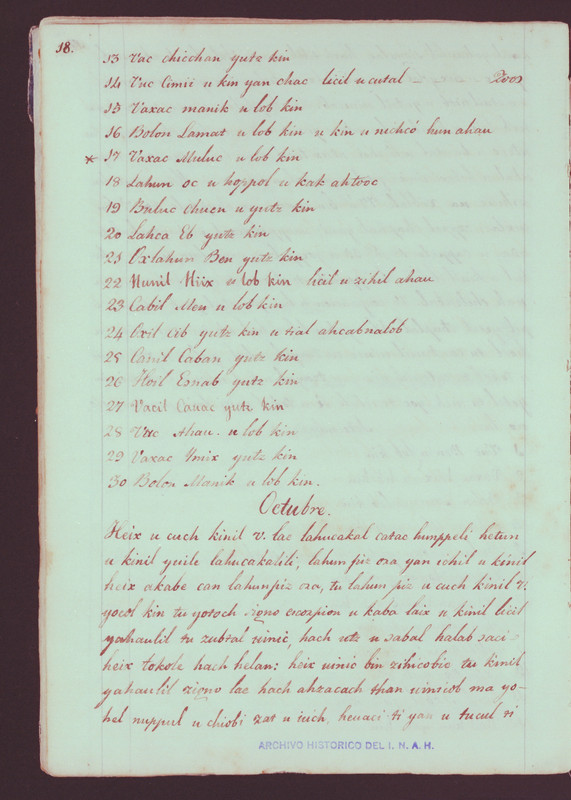 18.
13 Vac chicchan yutz kin
14 Vuc Cimii u kin yan chac licil u cutal —
15 Vaxac manik u lob kin
16 Bolon Lamat u lob kin u kin u nichcó hun ahau
* 17 Vaxac Muluc u lob kin
18 Lahun oc u hoppol u kak ahtooc
19 Buluc chuen u yutz kin
20 Lahca Eb yutz kin
21 Oxlahun Ben yutz kin
22 Hunil Hiix u lob kin licil u zihil ahau
23 Cabil Men u lob kin
24 Oxil cib yutz kin u sial ahcabnalob
25 Canil Caban yutz kin
26 Hoil Esnab yutz kin
27 Vacil Cauac yutz kin
28 Vuc Ahau. u lob kin
29 Vaxac Ymix yutz kin
30 Bolon Manik u lob kin.
Octubre.
Heix u cuch kinil v. lae lahucakal catac humppeli hetun
u kinil yuile lahucakalili, lahun piz ora yan ichil u kinil
heix akabe can lahunpiz ora, tu lahun piz u cuch kinil
yocol kin tu yotoch signo escorpion u kaba laix u kinil licil
yahaulil tu zubtal uinic, hach u sabal halab saci
heix tokole hach helan: heix uinic bin zihicobic tu kinil
yahaulil zigno lae hach ahzacach than uinicob ma yo-
hel nuppul u chiobi zat u iuch, heuaci ti yan u tucul ti
ARCHIVO HISTORICO DEL I. N. A. H.